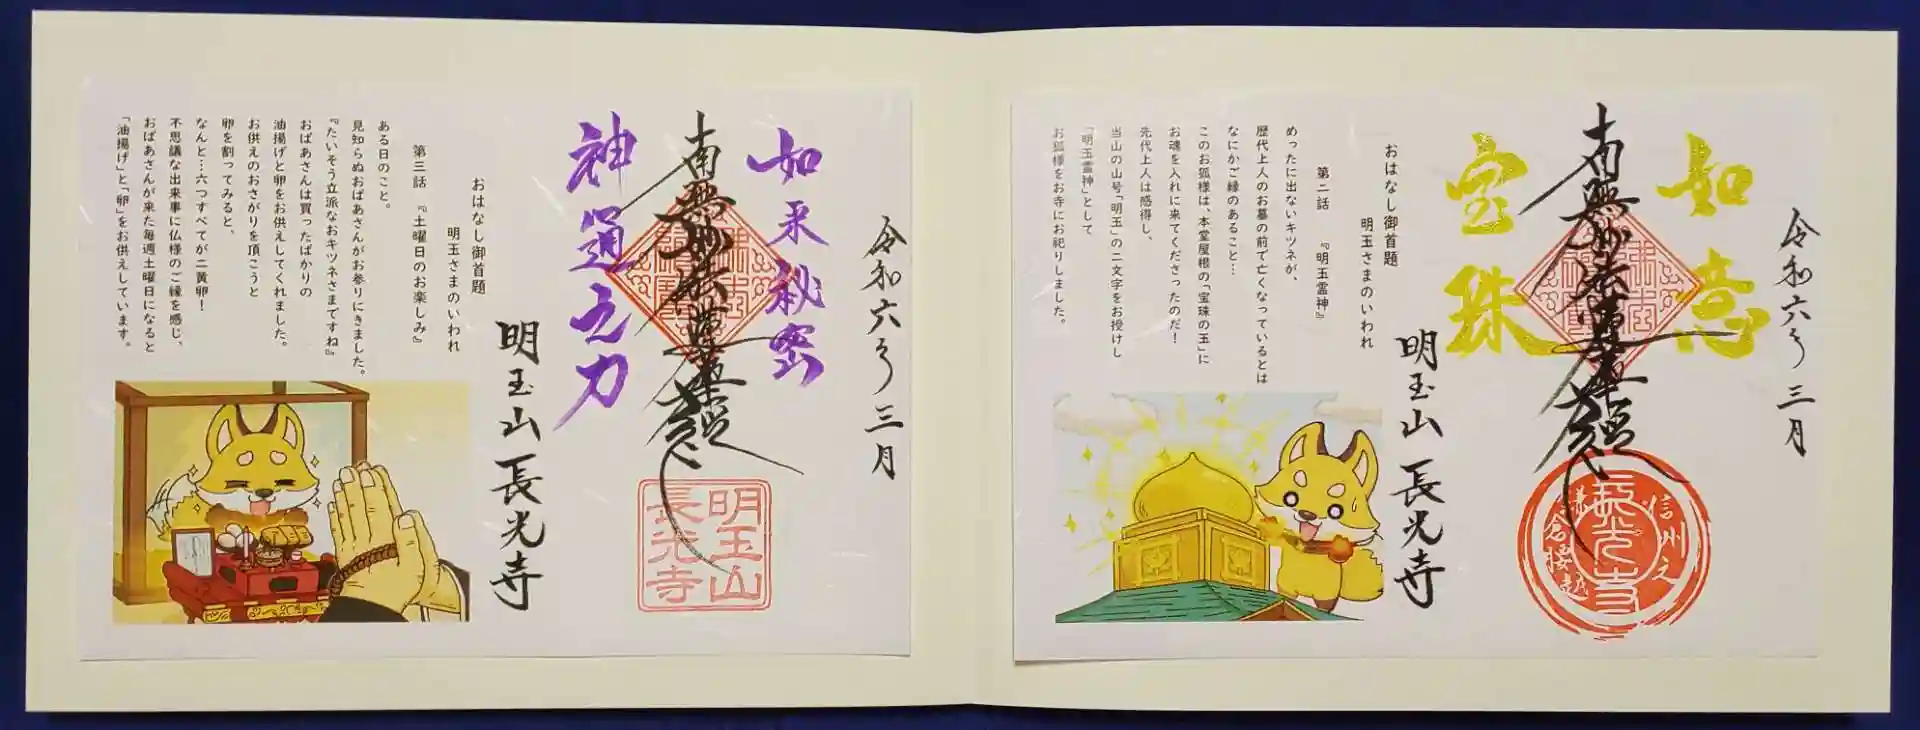 令和六年三月
如意
宝珠
南無妙法蓮華経
信州之
長光寺
明玉山 長光寺
おはなし御首題
明玉さまのいわれ
第二話 『明玉霊神』
めったに出ないキツネが、
歴代上人のお墓の前で亡くなっているとは
なにかご縁のあること…
このお狐様は、本堂屋根の「宝珠の玉」に
お魂を入れに来てくださったのだ!
先代上人は感得し、
当山の山号「明玉」の二文字をお授けし
「明玉霊神」として
お狐様をお寺にお祀りしました。
令和六年三月
如来秘密
神通之力
南無妙法蓮華経
明玉山
長光寺
明玉山 長光寺
おはなし御首題
明玉さまのいわれ
第三話 『土曜日のお楽しみ』
ある日のこと。
見知らぬおばあさんがお参りにきました。
『たいそう立派なおキツネさまですね』
おばあさんは買ったばかりの
油揚げと卵をお供えしてくれました。
お供えのおさがりを頂こうと
卵を割ってみると、
なんと…六つすべてが二黄卵!
不思議な出来事に仏様のご縁を感じ、
おばあさんが来た毎週土曜日になると
「油揚げ」と「卵」をお供えしています。